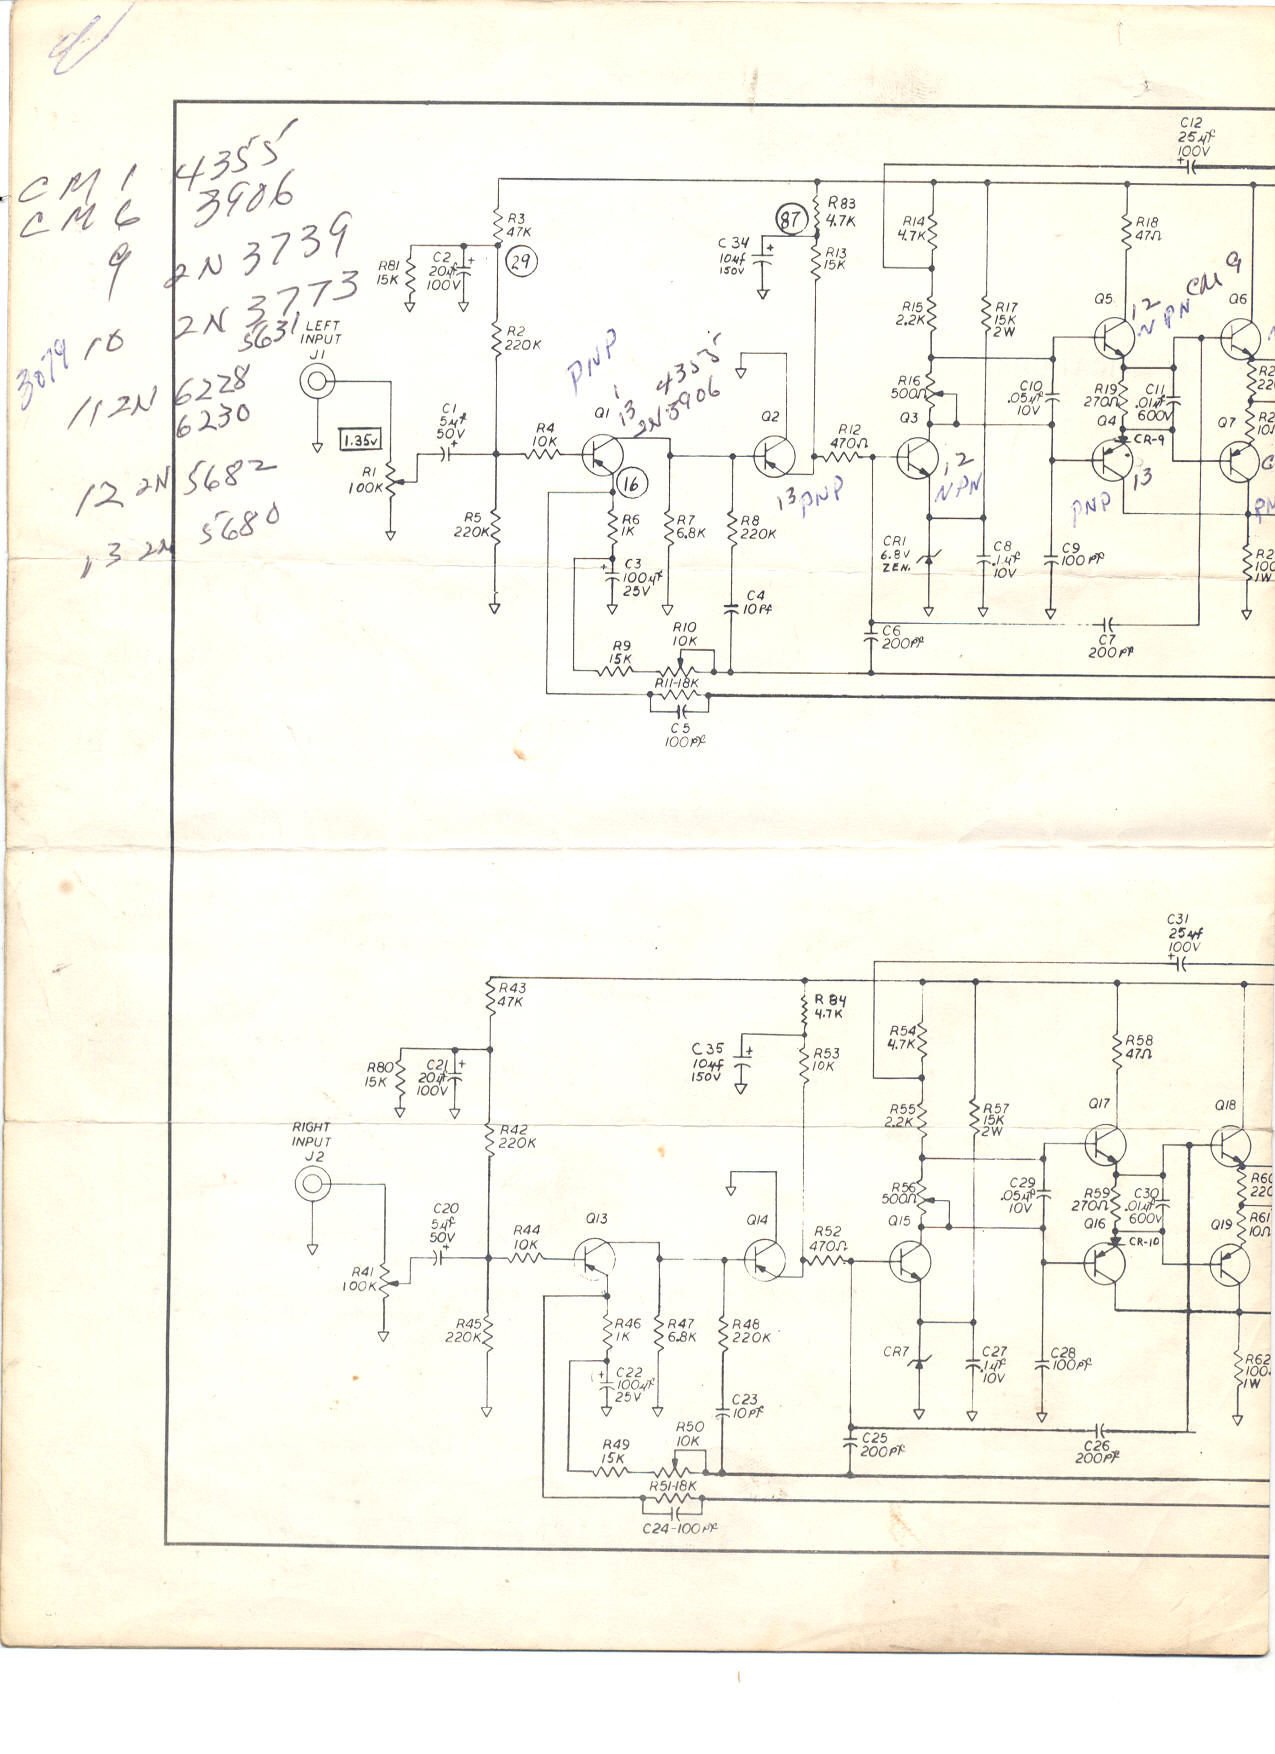 CM 1 4355
CM 6 3906
9 2N 3739
10 2N 3773
3079
5631
11 2N 6228
6230
12 2N 5682
13 2N 5680
C12
25µf
100V
R3
47K
29
R81
15K
C2
20µf
100V
R2
220K
LEFT
INPUT
J1
1.35V
R1
100K
C1
5µf
50V
R4
10K
R5
220K
PNP
1
13
4355
2N 3906
Q1
16
R6
1K
C3
100µf
25V
R7
6.8K
R8
220K
C4
10Pf
R9
15K
R10
10K
R11-18K
C5
100Pf
Q2
13 PNP
87
R83
4.7K
C34
10µf
150V
R13
15K
R12
470Ω
R14
4.7K
R15
2.2K
R16
500Ω
Q3
12
NPN
R17
15K
2W
CR1
6.8V
ZEN.
C8
.1µf
10V
C6
200Pf
C10
.05µf
10V
C9
100Pf
C7
200Pf
R18
47Ω
Q5
12
NPN
CM 9
Q6
R19
270Ω
C11
.01µf
600V
Q4
CR-9
13
PNP
Q7
R2
22
R2
10
PN
R2
100
1W
C31
25µf
100V
R43
47K
R80
15K
C21
20µf
100V
R42
220K
RIGHT
INPUT
J2
R41
100K
C20
5µf
50V
R44
10K
R45
220K
Q13
R46
1K
C22
100µf
25V
R47
6.8K
R48
220K
C23
10Pf
R49
15K
R50
10K
R51-18K
C24-100Pf
Q14
R84
4.7K
C35
10µf
150V
R53
10K
R52
470Ω
R54
4.7K
R55
2.2K
R56
500Ω
Q15
R57
15K
2W
CR7
C27
.1µf
10V
C25
200Pf
C29
.05µf
10V
C28
100Pf
C26
200Pf
R58
47Ω
Q17
Q18
R59
270Ω
C30
.01µf
600V
Q16
CR-10
Q19
R60
220
R61
10Ω
R62
100
1W